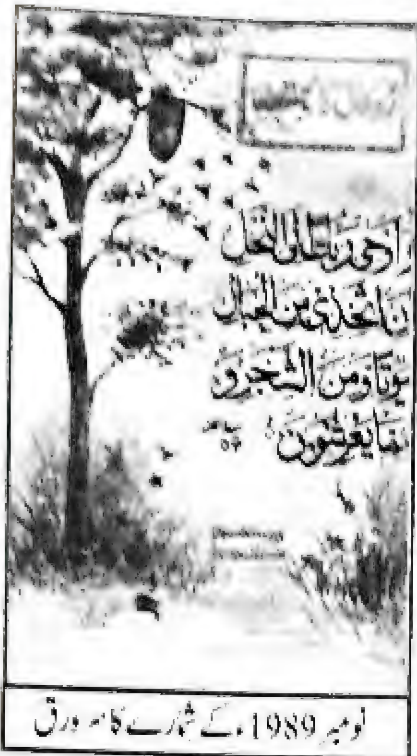 وَاَوْحٰى رَبُّكَ اِلَى النَّحْلِ
اَنِ اتَّخِذِىْ مِنَ الْجِبَالِ
بُيُوْتًا وَّمِنَ الشَّجَرِ وَ
مِمَّا يَعْرِشُوْنَ
نومبر 1989ء کے شمارے کا سرورق